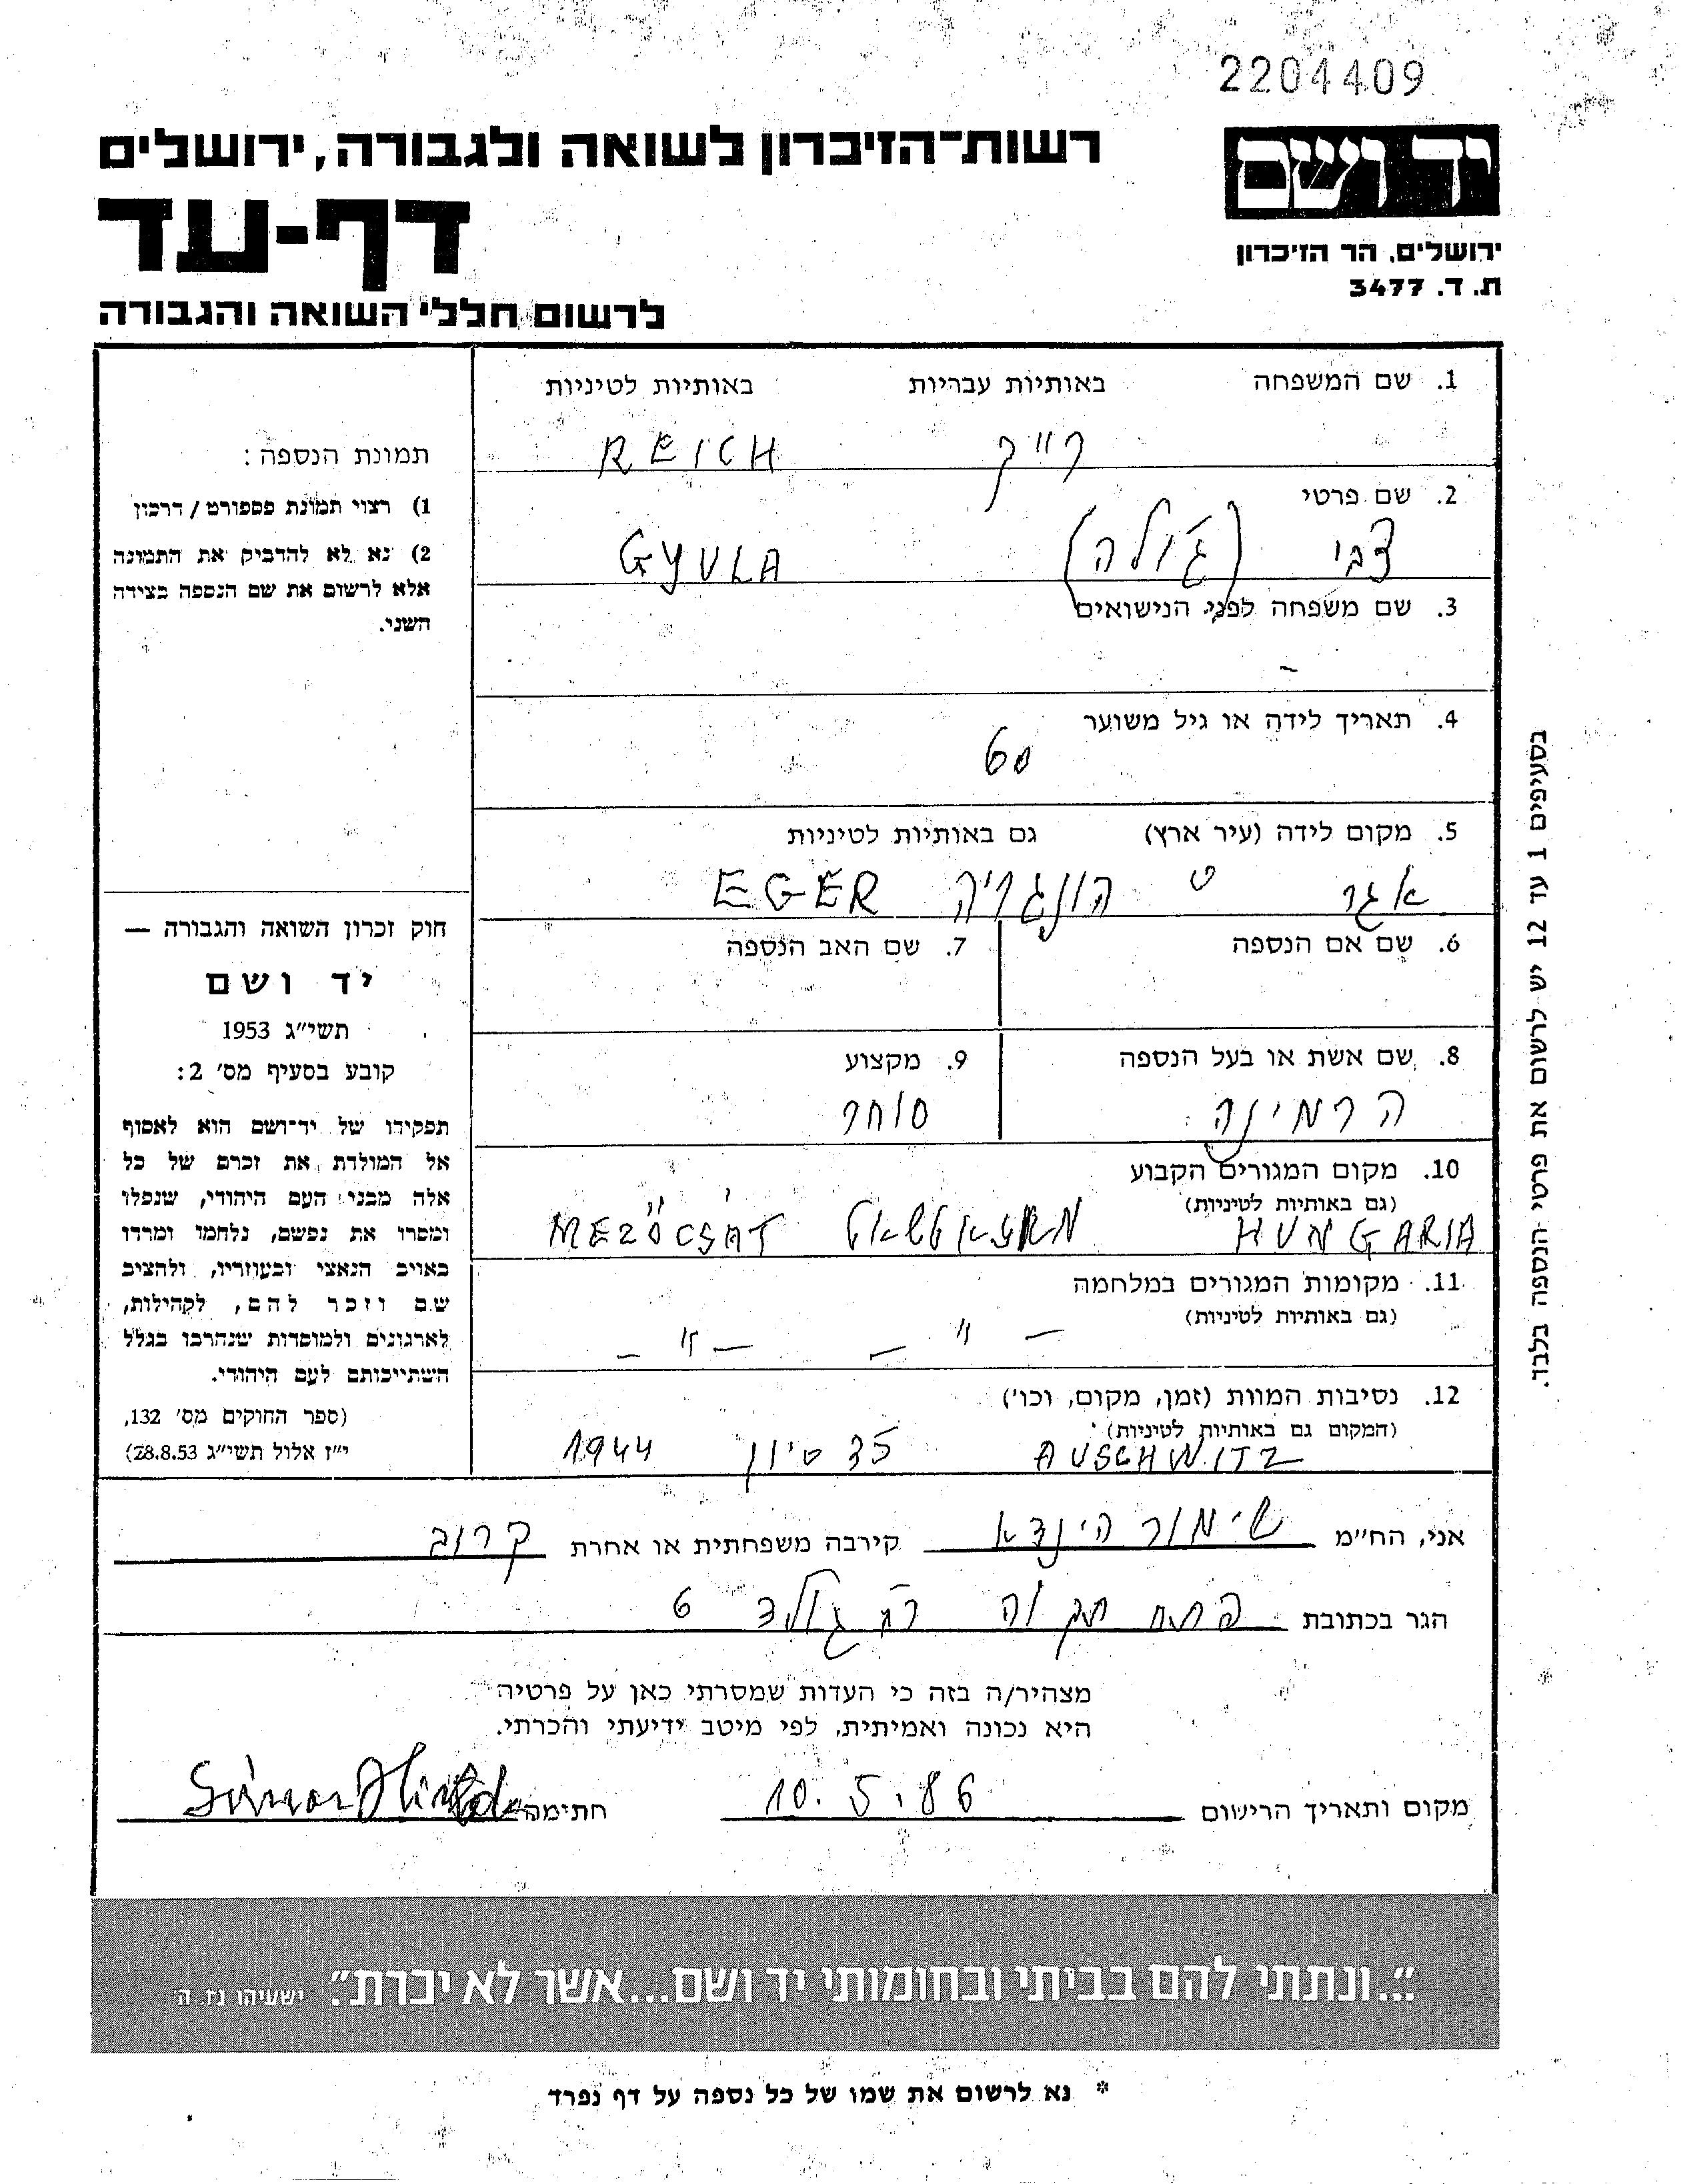 2204409
יד ושם
רשות־הזיכרון לשואה ולגבורה, ירושלים
דף-עד
ירושלים, הר הזיכרון
ת. ד. 3477
לרשום חללי השואה והגבורה
1. שם המשפחה באותיות עבריות באותיות לטיניות
רייך REICH
2. שם פרטי
צבי (ג'ולה) GYULA
3. שם משפחה לפני הנישואים
-
4. תאריך לידה או גיל משוער
60
5. מקום לידה (עיר ארץ) גם באותיות לטיניות
אגר הונגריה EGER
6. שם אם הנספה 7. שם האב הנספה
8. שם אשת או בעל הנספה 9. מקצוע
הרמינה סוחר
10. מקום המגורים הקבוע
(גם באותיות לטיניות)
HUNGARIA MEZÖCSÁT
11. מקומות המגורים במלחמה
(גם באותיות לטיניות)
— " — — " —
12. נסיבות המוות (זמן, מקום, וכו')
(המקום גם באותיות לטיניות)
AUSCHWITZ 1944
תמונת הנספה:
1) רצוי תמונת פספורט / דרכון
2) נא לא להדביק את התמונה
אלא לרשום את שם הנספה בצידה
השני.
חוק זכרון השואה והגבורה —
יד ושם
תשי"ג 1953
קובע בסעיף מס' 2:
תפקידו של יד־ושם הוא לאסוף
אל המולדת את זכרם של כל
אלה מבני העם היהודי, שנפלו
ומסרו את נפשם, נלחמו ומרדו
באויב הנאצי ובעוזריו, ולהציב
שם וזכר להם, לקהילות,
לארגונים ולמוסדות שנהרבו בגלל
השתייכותם לעם היהודי.
(ספר החוקים מס' 132,
י"ז אלול תשי"ג 28.8.53)
בסעיפים 1 עד 12 יש לרשום את פרטי הנספה בלבד.
אני, הח"מ שימור הינדא קירבה משפחתית או אחרת קרוב
הגר בכתובת פתח תקוה 6
מצהיר/ה בזה כי העדות שמסרתי כאן על פרטיה
היא נכונה ואמיתית, לפי מיטב ידיעתי והכרתי.
מקום ותאריך הרישום 10.5.86 חתימה
"...ונתתי להם בביתי ובחומותי יד ושם...אשר לא יכרת". ישעיהו נו, ה
* נא לרשום את שמו של כל נספה על דף נפרד